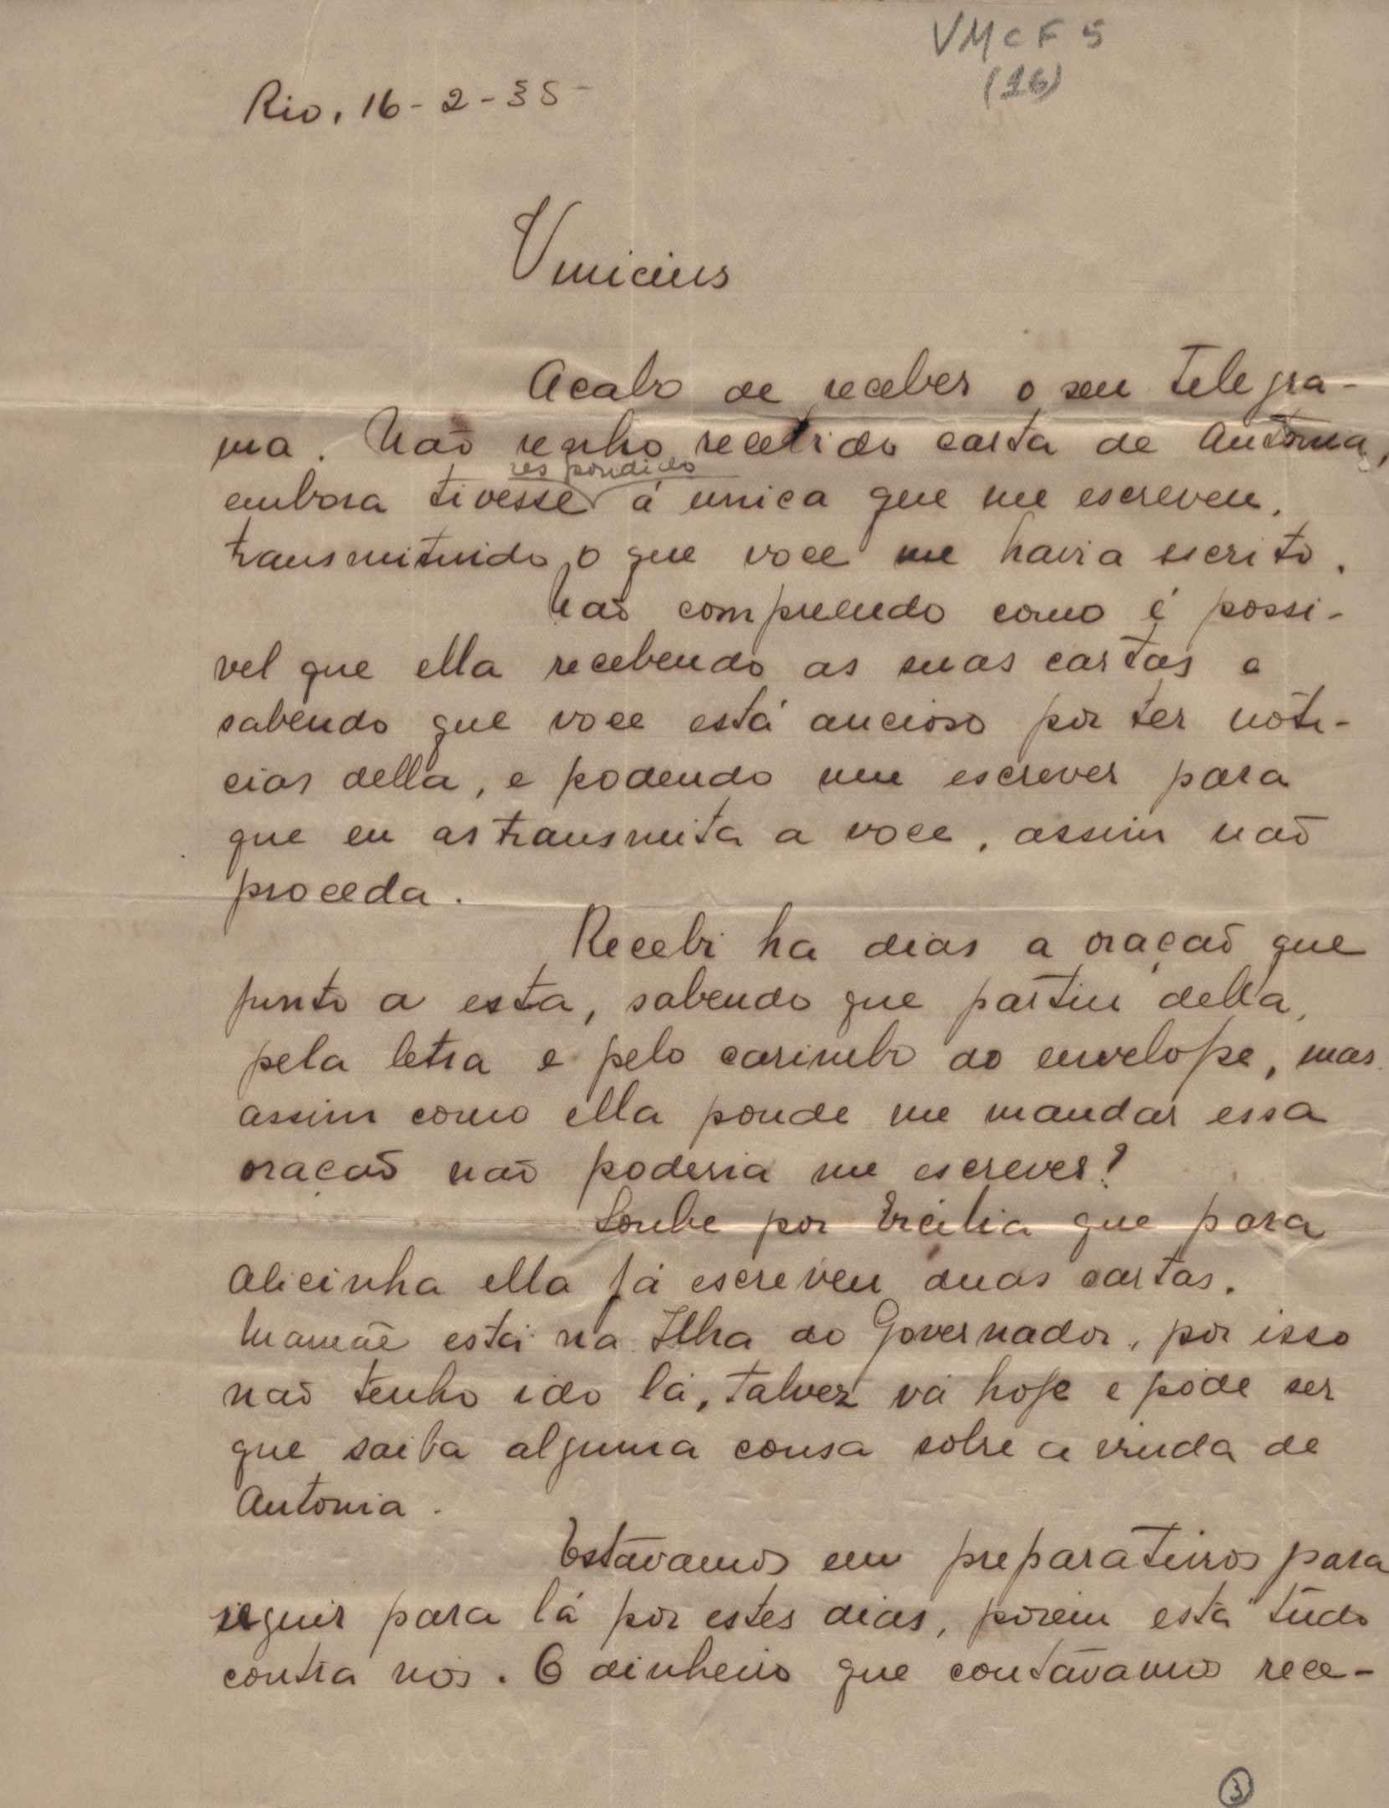 VMCF 5
(16)
Rio, 16-2-35-
Vinicius
Acabo de receber o seu telegra-
ma. Não tenho recebido carta de Antonia,
respondido
embora tivesse á unica que me escreveu,
transmitindo o que voce me havia escrito.
Não comprendo como é possi-
vel que ella recebendo as suas cartas e
sabendo que voce está ancioso por ter noti-
cias della, e podendo me escrever para
que eu as transmita a voce, assim não
proceda.
Recebi ha dias a oração que
junto a esta, sabendo que partiu della,
pela letra e pelo carimbo do envelope, mas
assim como ella poude me mandar essa
oração não poderia me escrever?
Soube por Ercilia que para
Alicinha ella já escreveu duas cartas.
Mamãe está na Ilha do Governador, por isso
não tenho ido lá, talvez vá hoje e póde ser
que saiba alguma cousa sobre a vinda de
Antonia.
Estavamos em preparativos para
seguir para lá por estes dias, porem está tudo
contra nós. O dinheiro que contávamos rece-
3